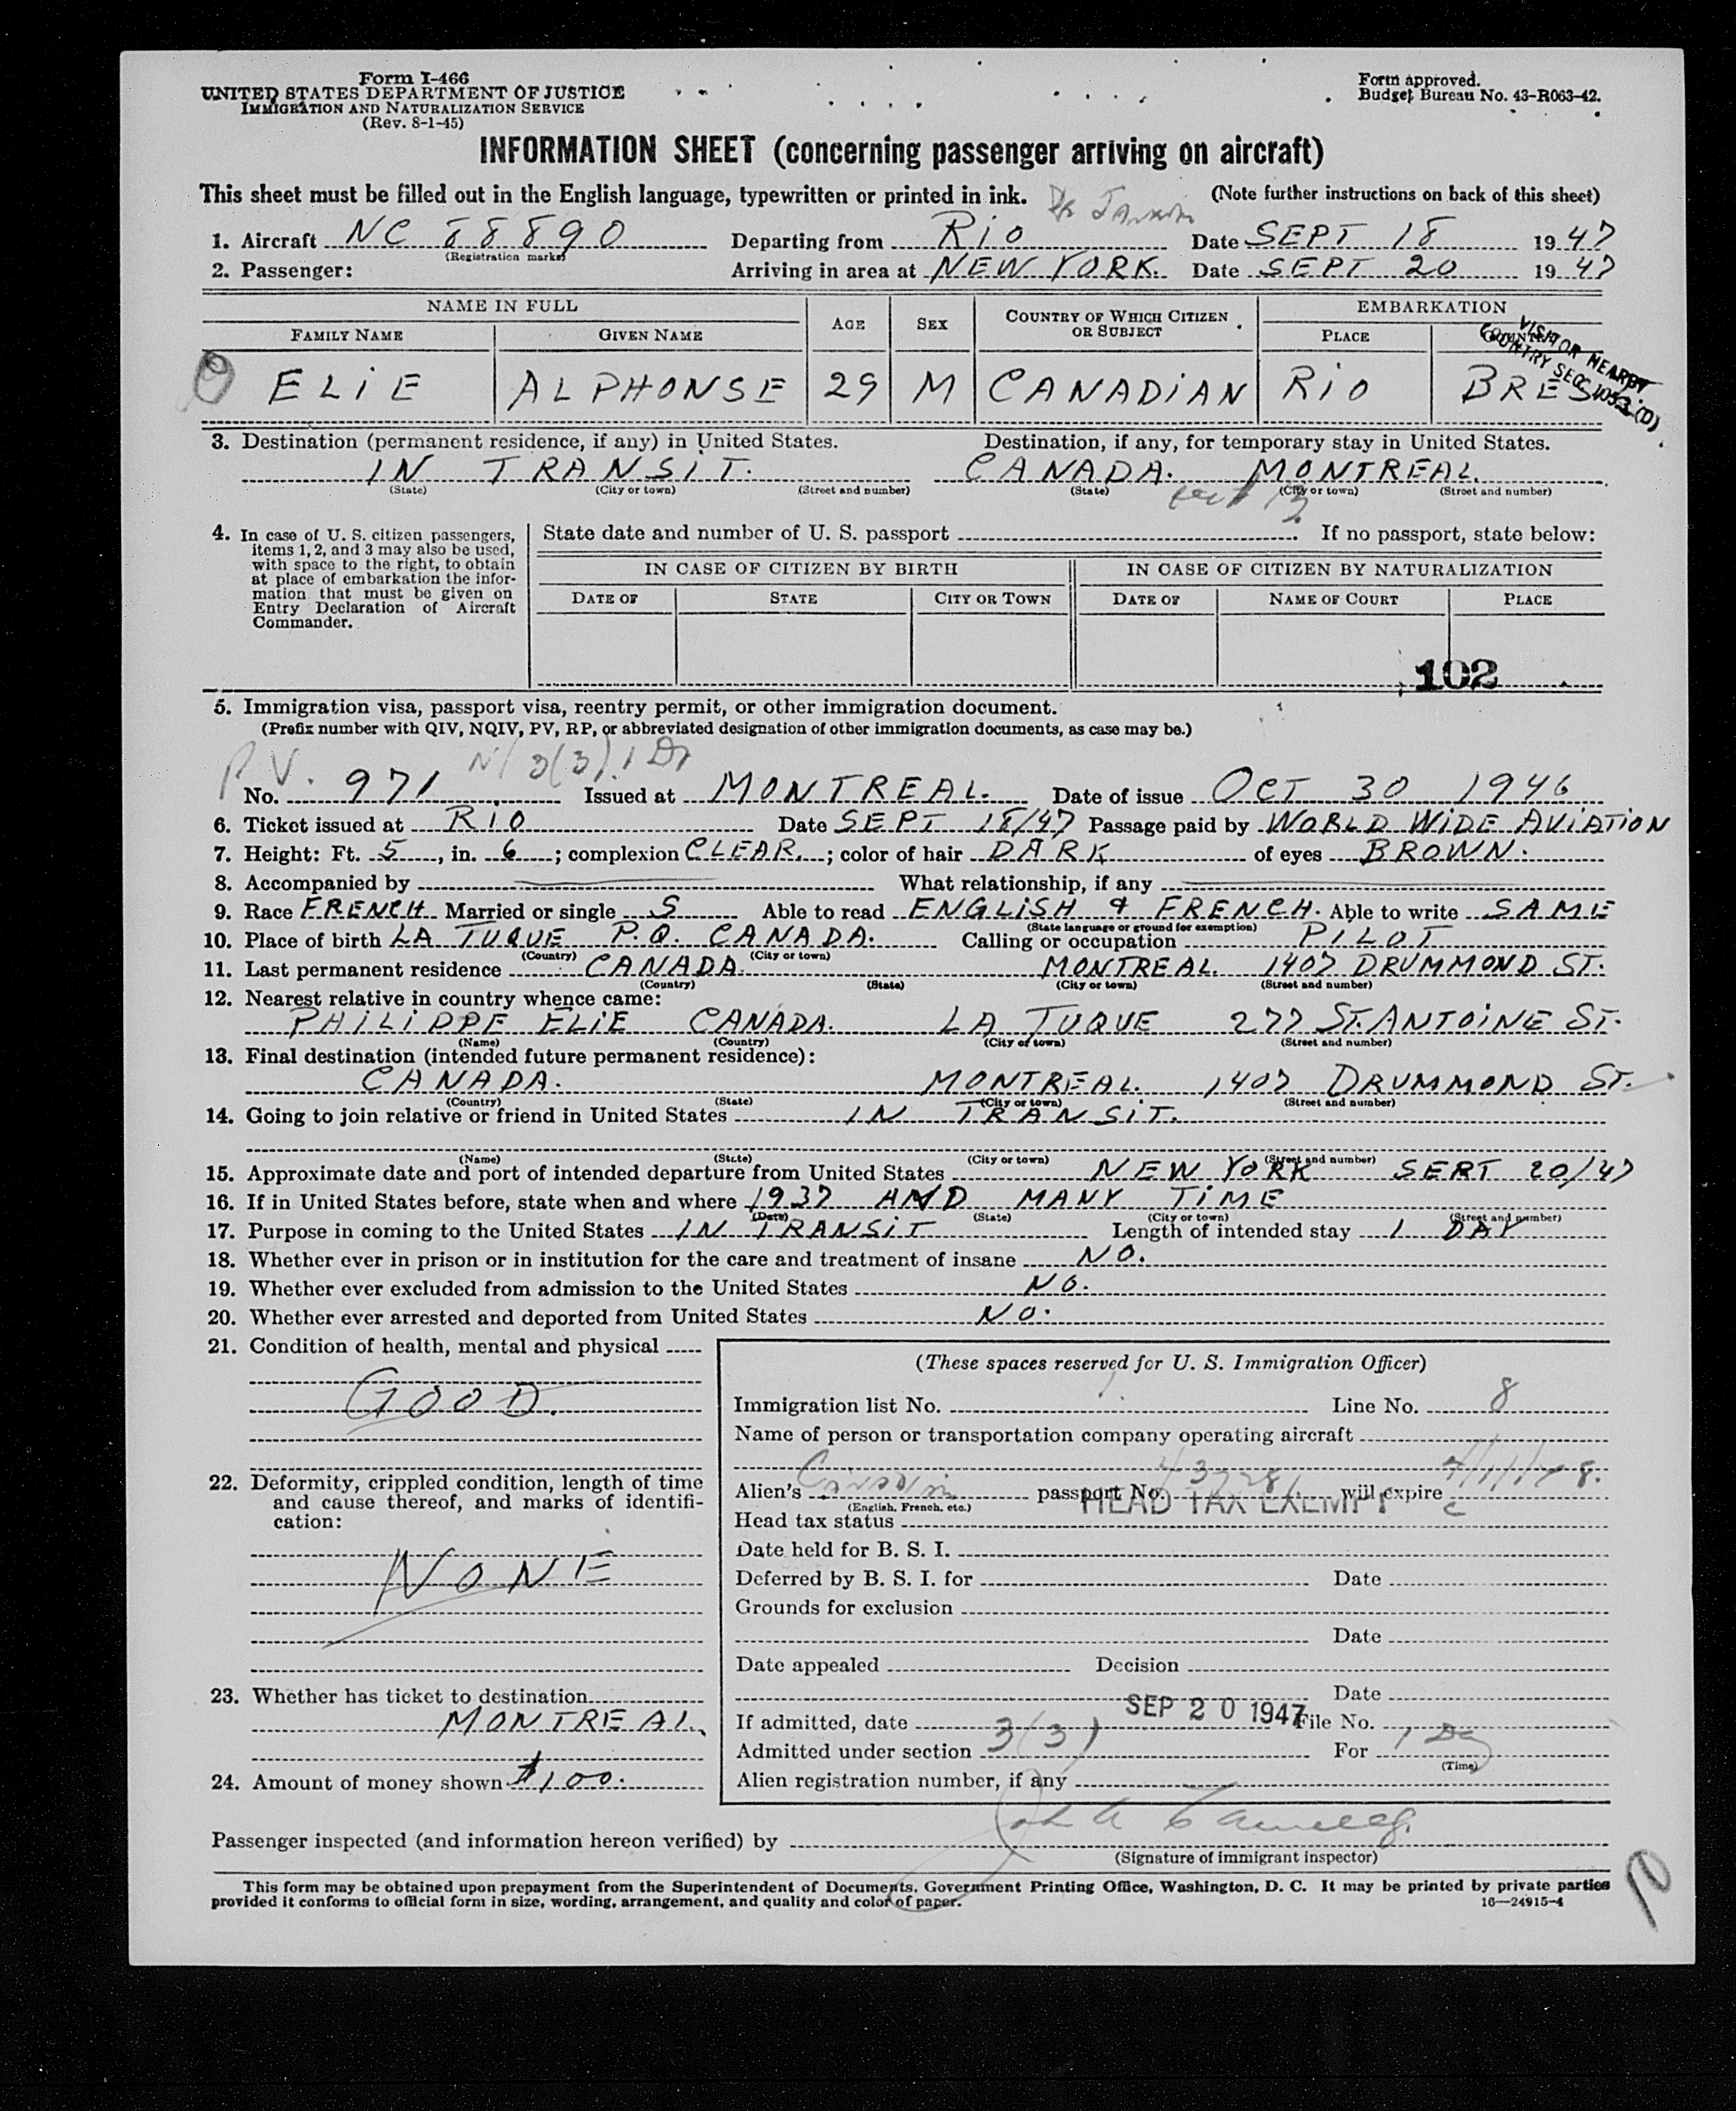 Form I-466
UNITED STATES DEPARTMENT OF JUSTICE
IMMIGRATION AND NATURALIZATION SERVICE
(Rev. 8-1-45)
Form approved.
Budget Bureau No. 43-R063-42.
INFORMATION SHEET (concerning passenger arriving on aircraft)
This sheet must be filled out in the English language, typewritten or printed in ink. (Note further instructions on back of this sheet)
1. Aircraft NC 88890 Departing from Rio De Janeiro Date SEPT 18 1947
(Registration marks)
2. Passenger: Arriving in area at NEW YORK. Date SEPT 20 1947
NAME IN FULL AGE SEX COUNTRY OF WHICH CITIZEN OR SUBJECT EMBARKATION
FAMILY NAME GIVEN NAME PLACE COUNTRY
VISITOR NEARBY
COUNTRY SEC. 105.3 (D)
ELIE ALPHONSE 29 M CANADIAN RIO BRESIL
3. Destination (permanent residence, if any) in United States. Destination, if any, for temporary stay in United States.
IN TRANSIT. CANADA. MONTREAL.
(State) (City or town) (Street and number) (State) (City or town) (Street and number)
4. In case of U. S. citizen passengers, items 1, 2, and 3 may also be used, with space to the right, to obtain at place of embarkation the information that must be given on Entry Declaration of Aircraft Commander.
State date and number of U. S. passport . If no passport, state below:
IN CASE OF CITIZEN BY BIRTH IN CASE OF CITIZEN BY NATURALIZATION
DATE OF STATE CITY OR TOWN DATE OF NAME OF COURT PLACE
102
5. Immigration visa, passport visa, reentry permit, or other immigration document.
(Prefix number with QIV, NQIV, PV, RP, or abbreviated designation of other immigration documents, as case may be.)
P.V. 3(3) 1 Dy
No. 971 Issued at MONTREAL. Date of issue OCT 30 1946
6. Ticket issued at RIO Date SEPT 18/47 Passage paid by WORLD WIDE AVIATION
7. Height: Ft. 5, in. 6; complexion CLEAR.; color of hair DARK of eyes BROWN.
8. Accompanied by What relationship, if any
9. Race FRENCH Married or single S Able to read ENGLISH & FRENCH. Able to write SAME
(State language or ground for exemption)
10. Place of birth LA TUQUE P.Q. CANADA. Calling or occupation PILOT
(Country) (City or town)
11. Last permanent residence CANADA. MONTREAL. 1407 DRUMMOND ST.
(Country) (State) (City or town) (Street and number)
12. Nearest relative in country whence came:
PHILIPPE ELIE CANADA. LA TUQUE 277 ST. ANTOINE ST.
(Name) (Country) (City of town) (Street and number)
13. Final destination (intended future permanent residence):
CANADA. MONTREAL. 1407 DRUMMOND ST.
(Country) (State) (City or town) (Street and number)
14. Going to join relative or friend in United States IN TRANSIT.
(Name) (State) (City or town) (Street and number)
15. Approximate date and port of intended departure from United States NEW YORK SEPT 20/47
16. If in United States before, state when and where 1937 AND MANY TIME
(Date) (State) (City or town) (Street and number)
17. Purpose in coming to the United States IN TRANSIT Length of intended stay 1 DAY
18. Whether ever in prison or in institution for the care and treatment of insane NO.
19. Whether ever excluded from admission to the United States NO.
20. Whether ever arrested and deported from United States NO.
21. Condition of health, mental and physical
GOOD.
22. Deformity, crippled condition, length of time and cause thereof, and marks of identification:
NONE
23. Whether has ticket to destination
MONTREAL.
24. Amount of money shown $100.
(These spaces reserved for U. S. Immigration Officer)
Immigration list No. Line No. 8
Name of person or transportation company operating aircraft
Alien's passport No. will expire
(English, French, etc.)
HEAD TAX EXEMPT
Head tax status
Date held for B. S. I.
Deferred by B. S. I. for Date
Grounds for exclusion
Date
Date appealed Decision
Date
If admitted, date SEP 20 1947 File No.
Admitted under section 3(3) For 1 Dy
(Time)
Alien registration number, if any
Passenger inspected (and information hereon verified) by
(Signature of immigrant inspector)
This form may be obtained upon prepayment from the Superintendent of Documents, Government Printing Office, Washington, D. C. It may be printed by private parties
provided it conforms to official form in size, wording, arrangement, and quality and color of paper. 16—24915-4